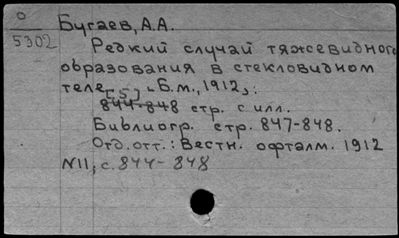 О
5302
Бугаев, А.А.
Редкий случай тяжевидного
образования в стекловидном
теле, Б.м., 1912,:
[5] 844-848 стр. с илл.
Библиогр. стр. 847-848.
Отд. отт.: Вестн. офталм. 1912
N11, с. 844-848